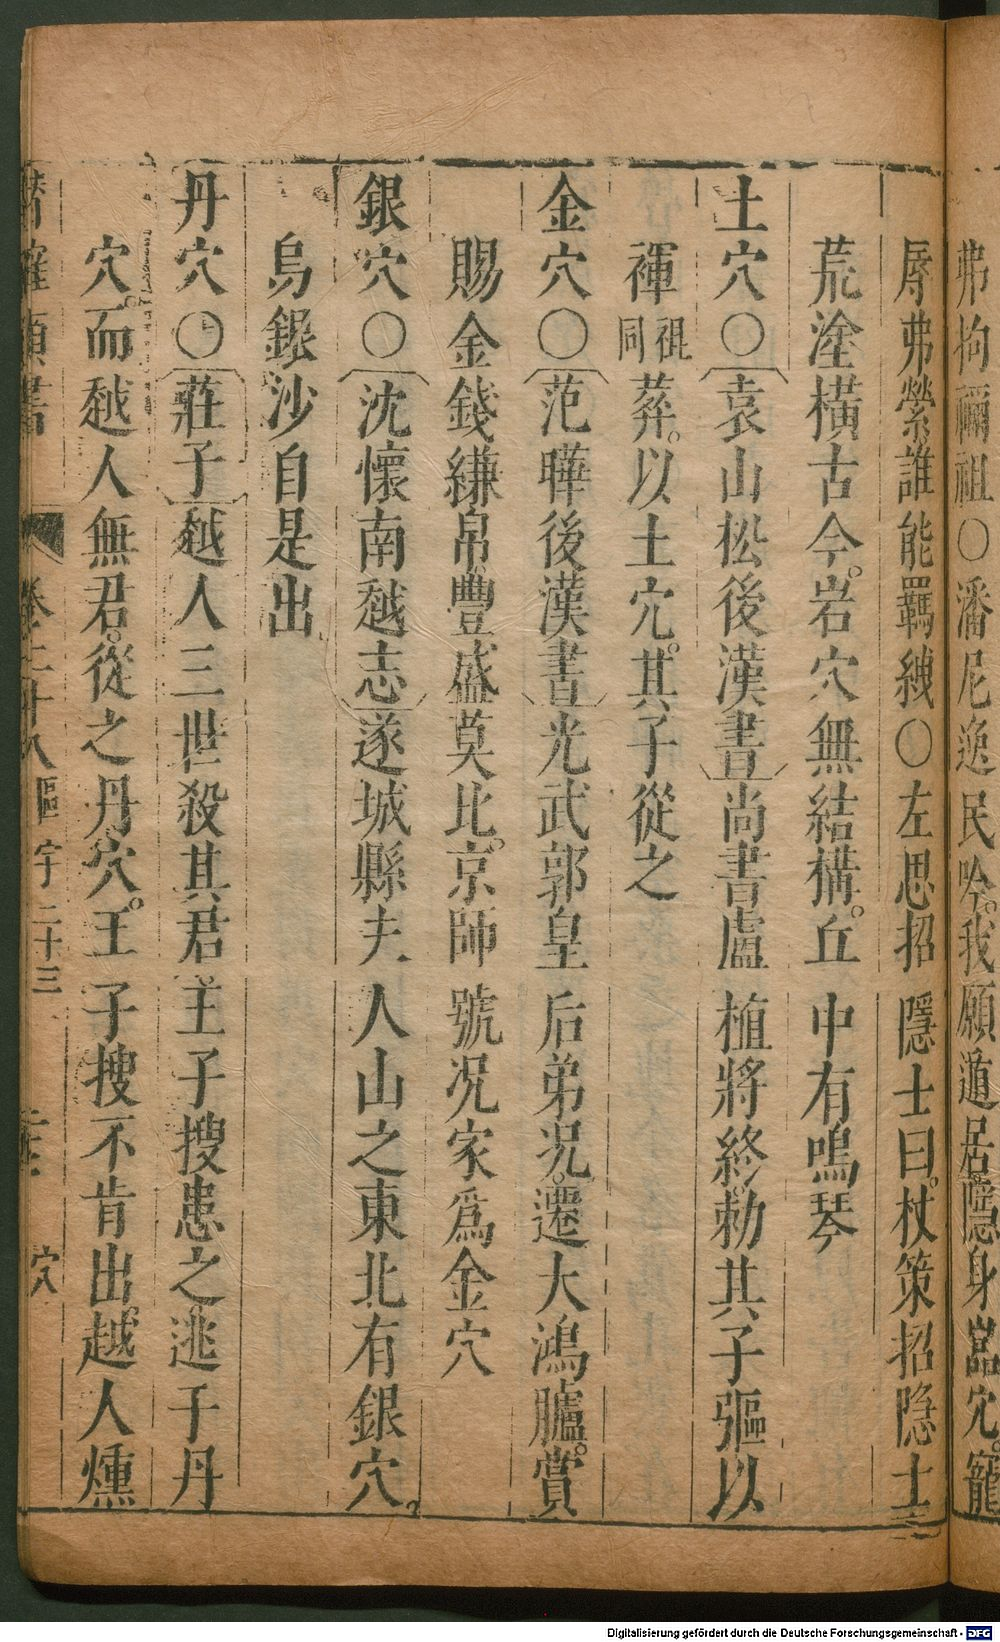 弗拘禰祖○潘尼逸民吟我願遁居隱身嵓穴寵
辱弗縈誰能羈紲○左思招隱士曰杖策招隐士
荒塗橫古今岩穴無結構丘中有鳴琴
土穴○袁山松後漢書尚書盧植將終勑其子驅以
褌裩同葬以土穴其子從之
金穴○范曄後漢書光武郭皇后弟况遷大鴻臚賞
賜金錢縑帛豐盛莫比京師號况家爲金穴
銀穴○沈懷南越志遂城縣夫人山之東北有銀穴
烏銀沙自是出
丹穴○莊子越人三世殺其君王子搜患之逃于丹
穴而越人無君從之丹穴王子搜不肯出越人燻
卷二十八 驅宇二十三 穴
Digitalisierung gefördert durch die Deutsche Forschungsgemeinschaft - DFG